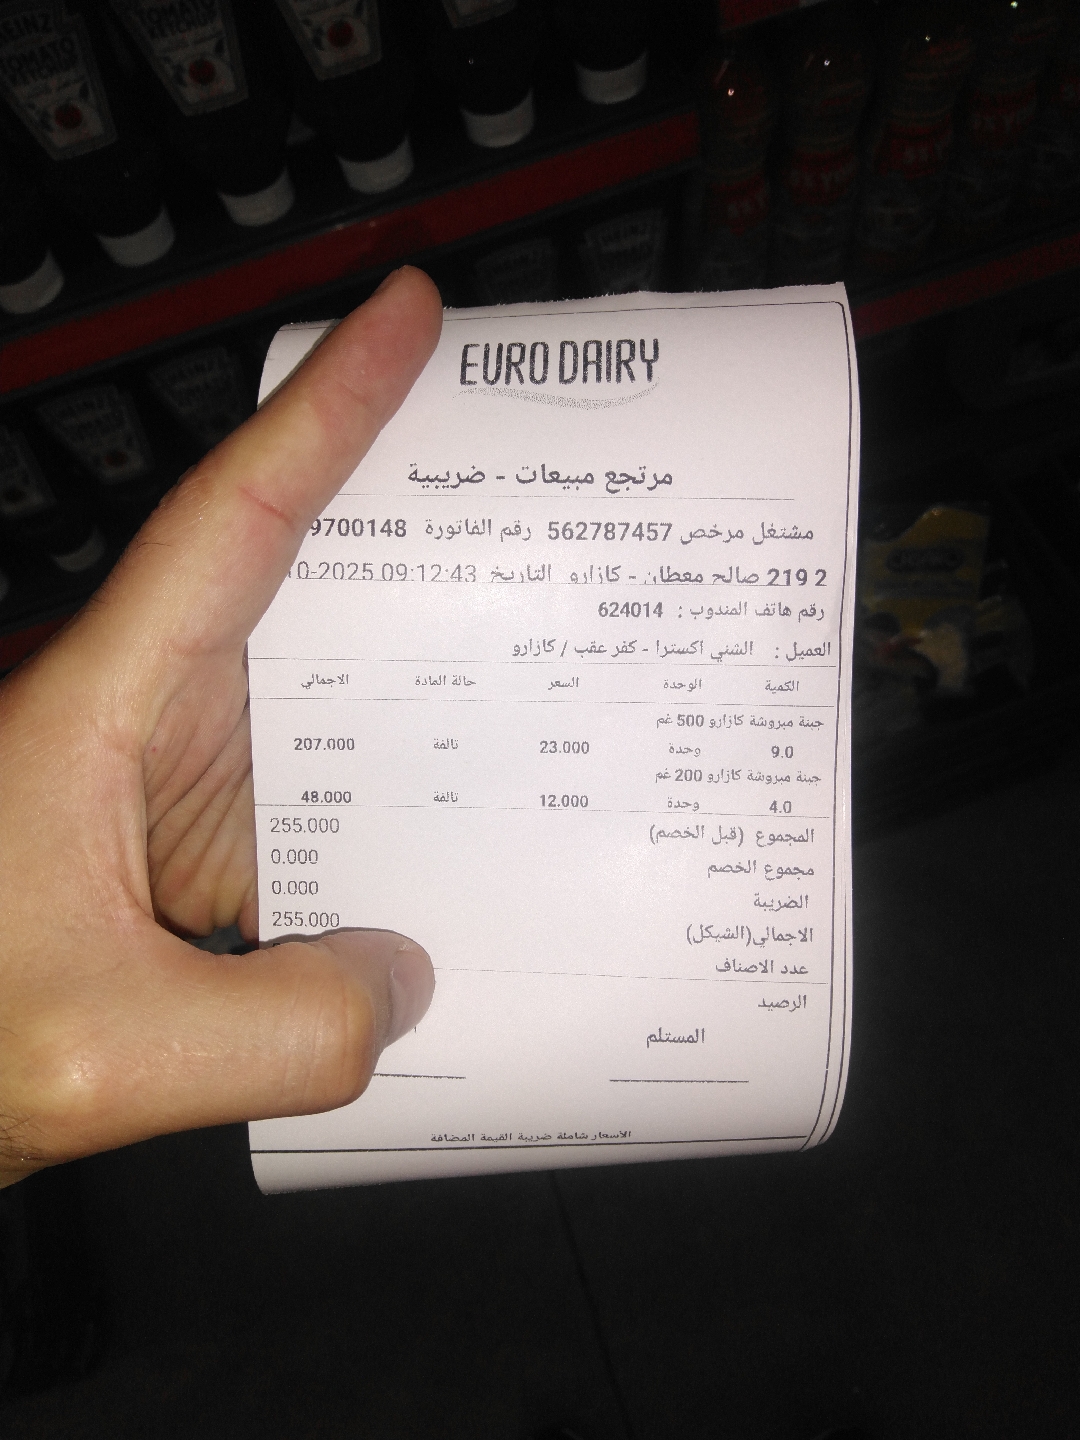 HEINZ
TOMATO
KETCHUP
TOMATO
KETCHUP
EURO DAIRY
مرتجع مبيعات - ضريبية
مشتغل مرخص 562787457 رقم الفاتورة 9700148
2 219 صالح معطان - كازارو التاريخ 0-2025 09:12:43
رقم هاتف المندوب : 624014
العميل : الشني اكسترا - كفر عقب / كازارو
الكمية الوحدة السعر حالة المادة الاجمالي
جبنة مبروشة كازارو 500 غم
9.0 وحدة 23.000 تالفة 207.000
جبنة مبروشة كازارو 200 غم
4.0 وحدة 12.000 تالفة 48.000
المجموع (قبل الخصم) 255.000
مجموع الخصم 0.000
الضريبة 0.000
الاجمالي(الشيكل) 255.000
عدد الاصناف
الرصيد
المستلم
الأسعار شاملة ضريبة القيمة المضافة